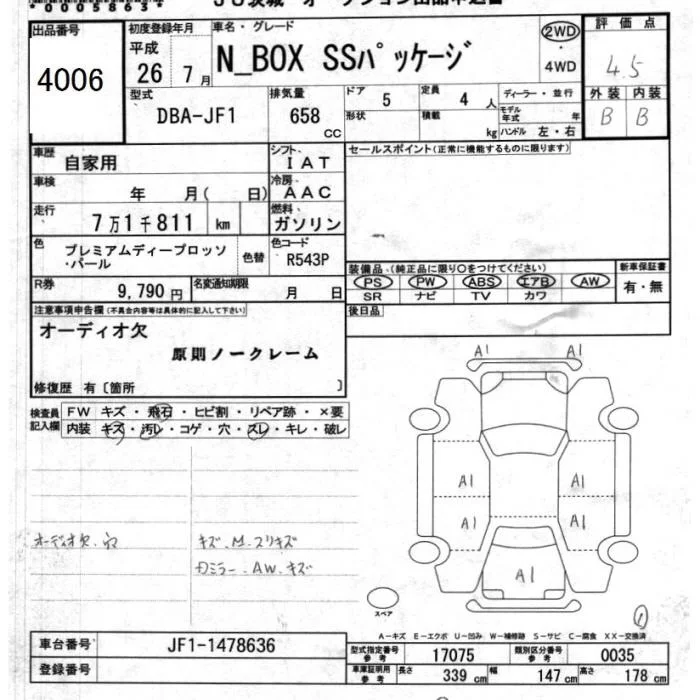 *00058634
出品番号
4006
初度登録年月
平成
26 7月
車名・グレード
N_BOX SSパッケージ
2WD
・
4WD
評価点
4.5
外装 内装
B B
型式
DBA-JF1
排気量
658
CC
ドア
5
定員
4 人
形状
積載
kg
ディーラー・並行
モデル年式 年
ハンドル 左・右
車歴
自家用
シフト
IAT
セールスポイント(正常に機能するものに限ります)
車検
年 月( 日)
冷房
AAC
走行
7万1千811 km
燃料
ガソリン
色
プレミアムディープロッソ
・パール
色替
色コード
R543P
装備品(純正品に限り○をつけてください)
新車保証書
PS PW ABS エアB AW
有・無
SR ナビ TV カワ
R券
9,790 円
名変通知期限
月 日
後日品
注意事項申告欄(不具合内容等は具体的に記入して下さい)
オーディオ欠
原則ノークレーム
修復歴 有〔箇所 〕
検査員
記入欄
FW キズ・飛石・ヒビ割・リペア跡・×要
内装 キズ・汚レ・コゲ・穴・スレ・キレ・破レ
オーディオ欠.穴
キズ.M.スリキズ
Dミラー.AW.キズ
A1 A1
A1 A1
A1 A1
A1
スペア
1
A-キズ E-エクボ U-凹み W-補修跡 S-サビ C-腐食 XX-交換済
車台番号
JF1-1478636
登録番号
型式指定番号
参考
17075
類別区分番号
参考
0035
車庫証明用
参考
長さ 339 cm 幅 147 cm 高さ 178 cm